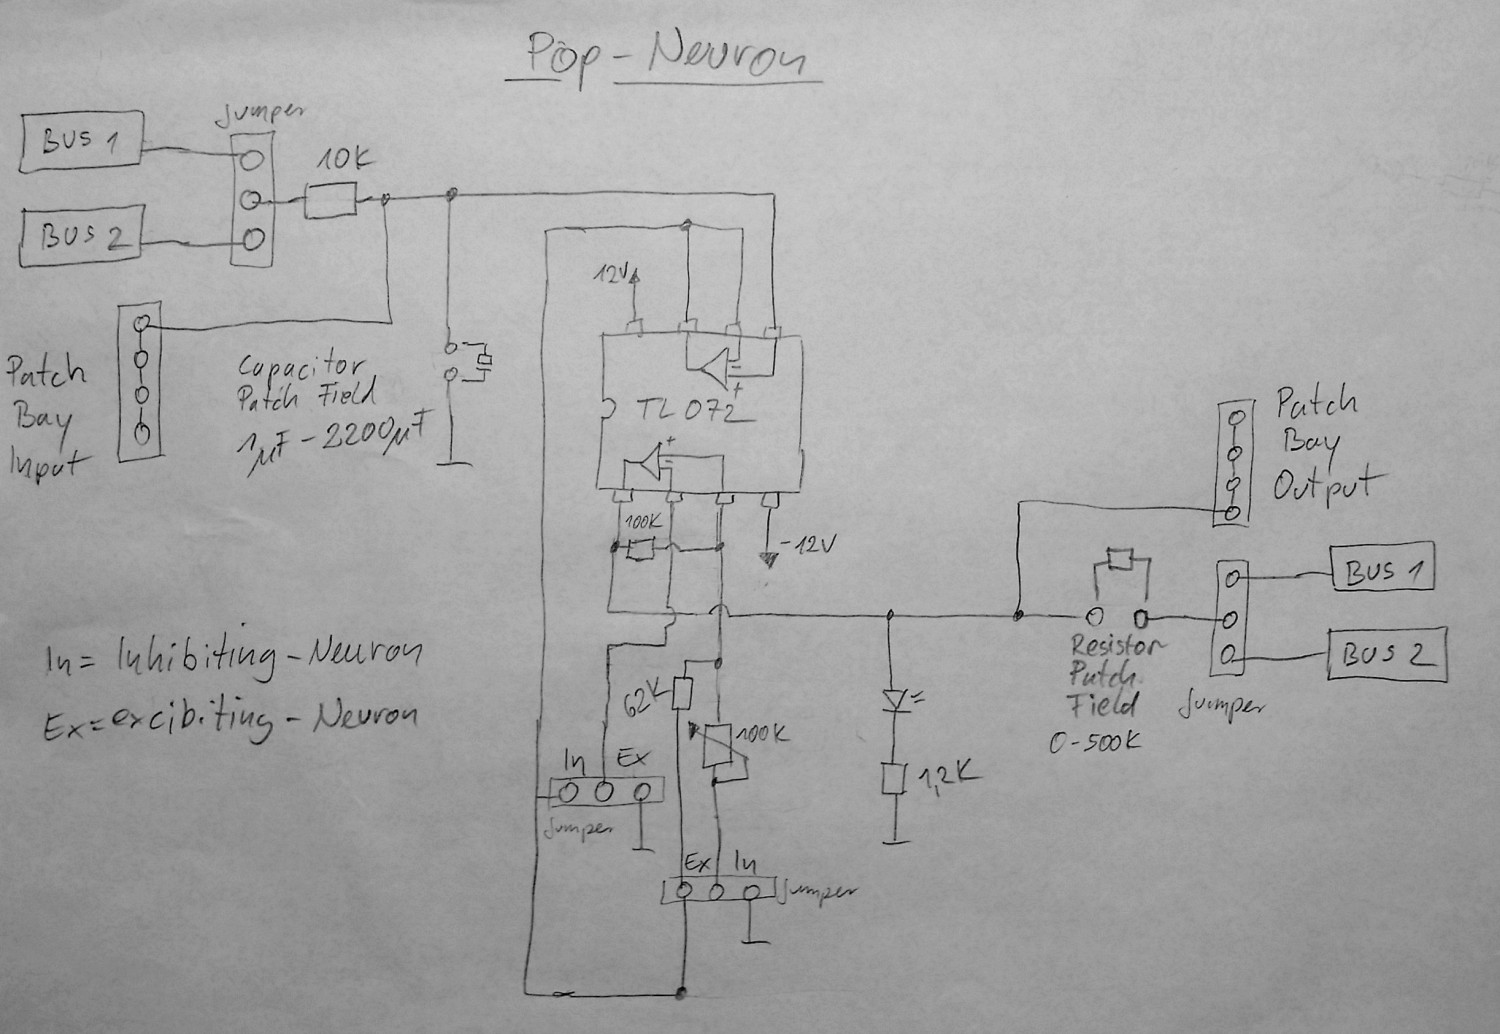 Pop-Neuron
Jumper
BUS 1
10K
BUS 2
12V
Patch
Bay
Input
Capacitor
Patch Field
1µF - 2200µF
+
TL 072
+
100K
-12V
Patch
Bay
Output
BUS 1
BUS 2
Resistor
Patch
Field
0-500K
Jumper
In = Inhibiting - Neuron
Ex = excibiting - Neuron
62K
100K
In Ex
Jumper
1,2K
Ex In
Jumper